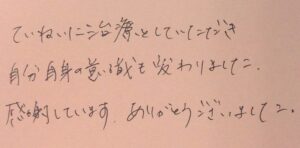 ていねいに治療をしていただき
自分自身の意識も変わりました。
感謝しています。ありがとうございました。